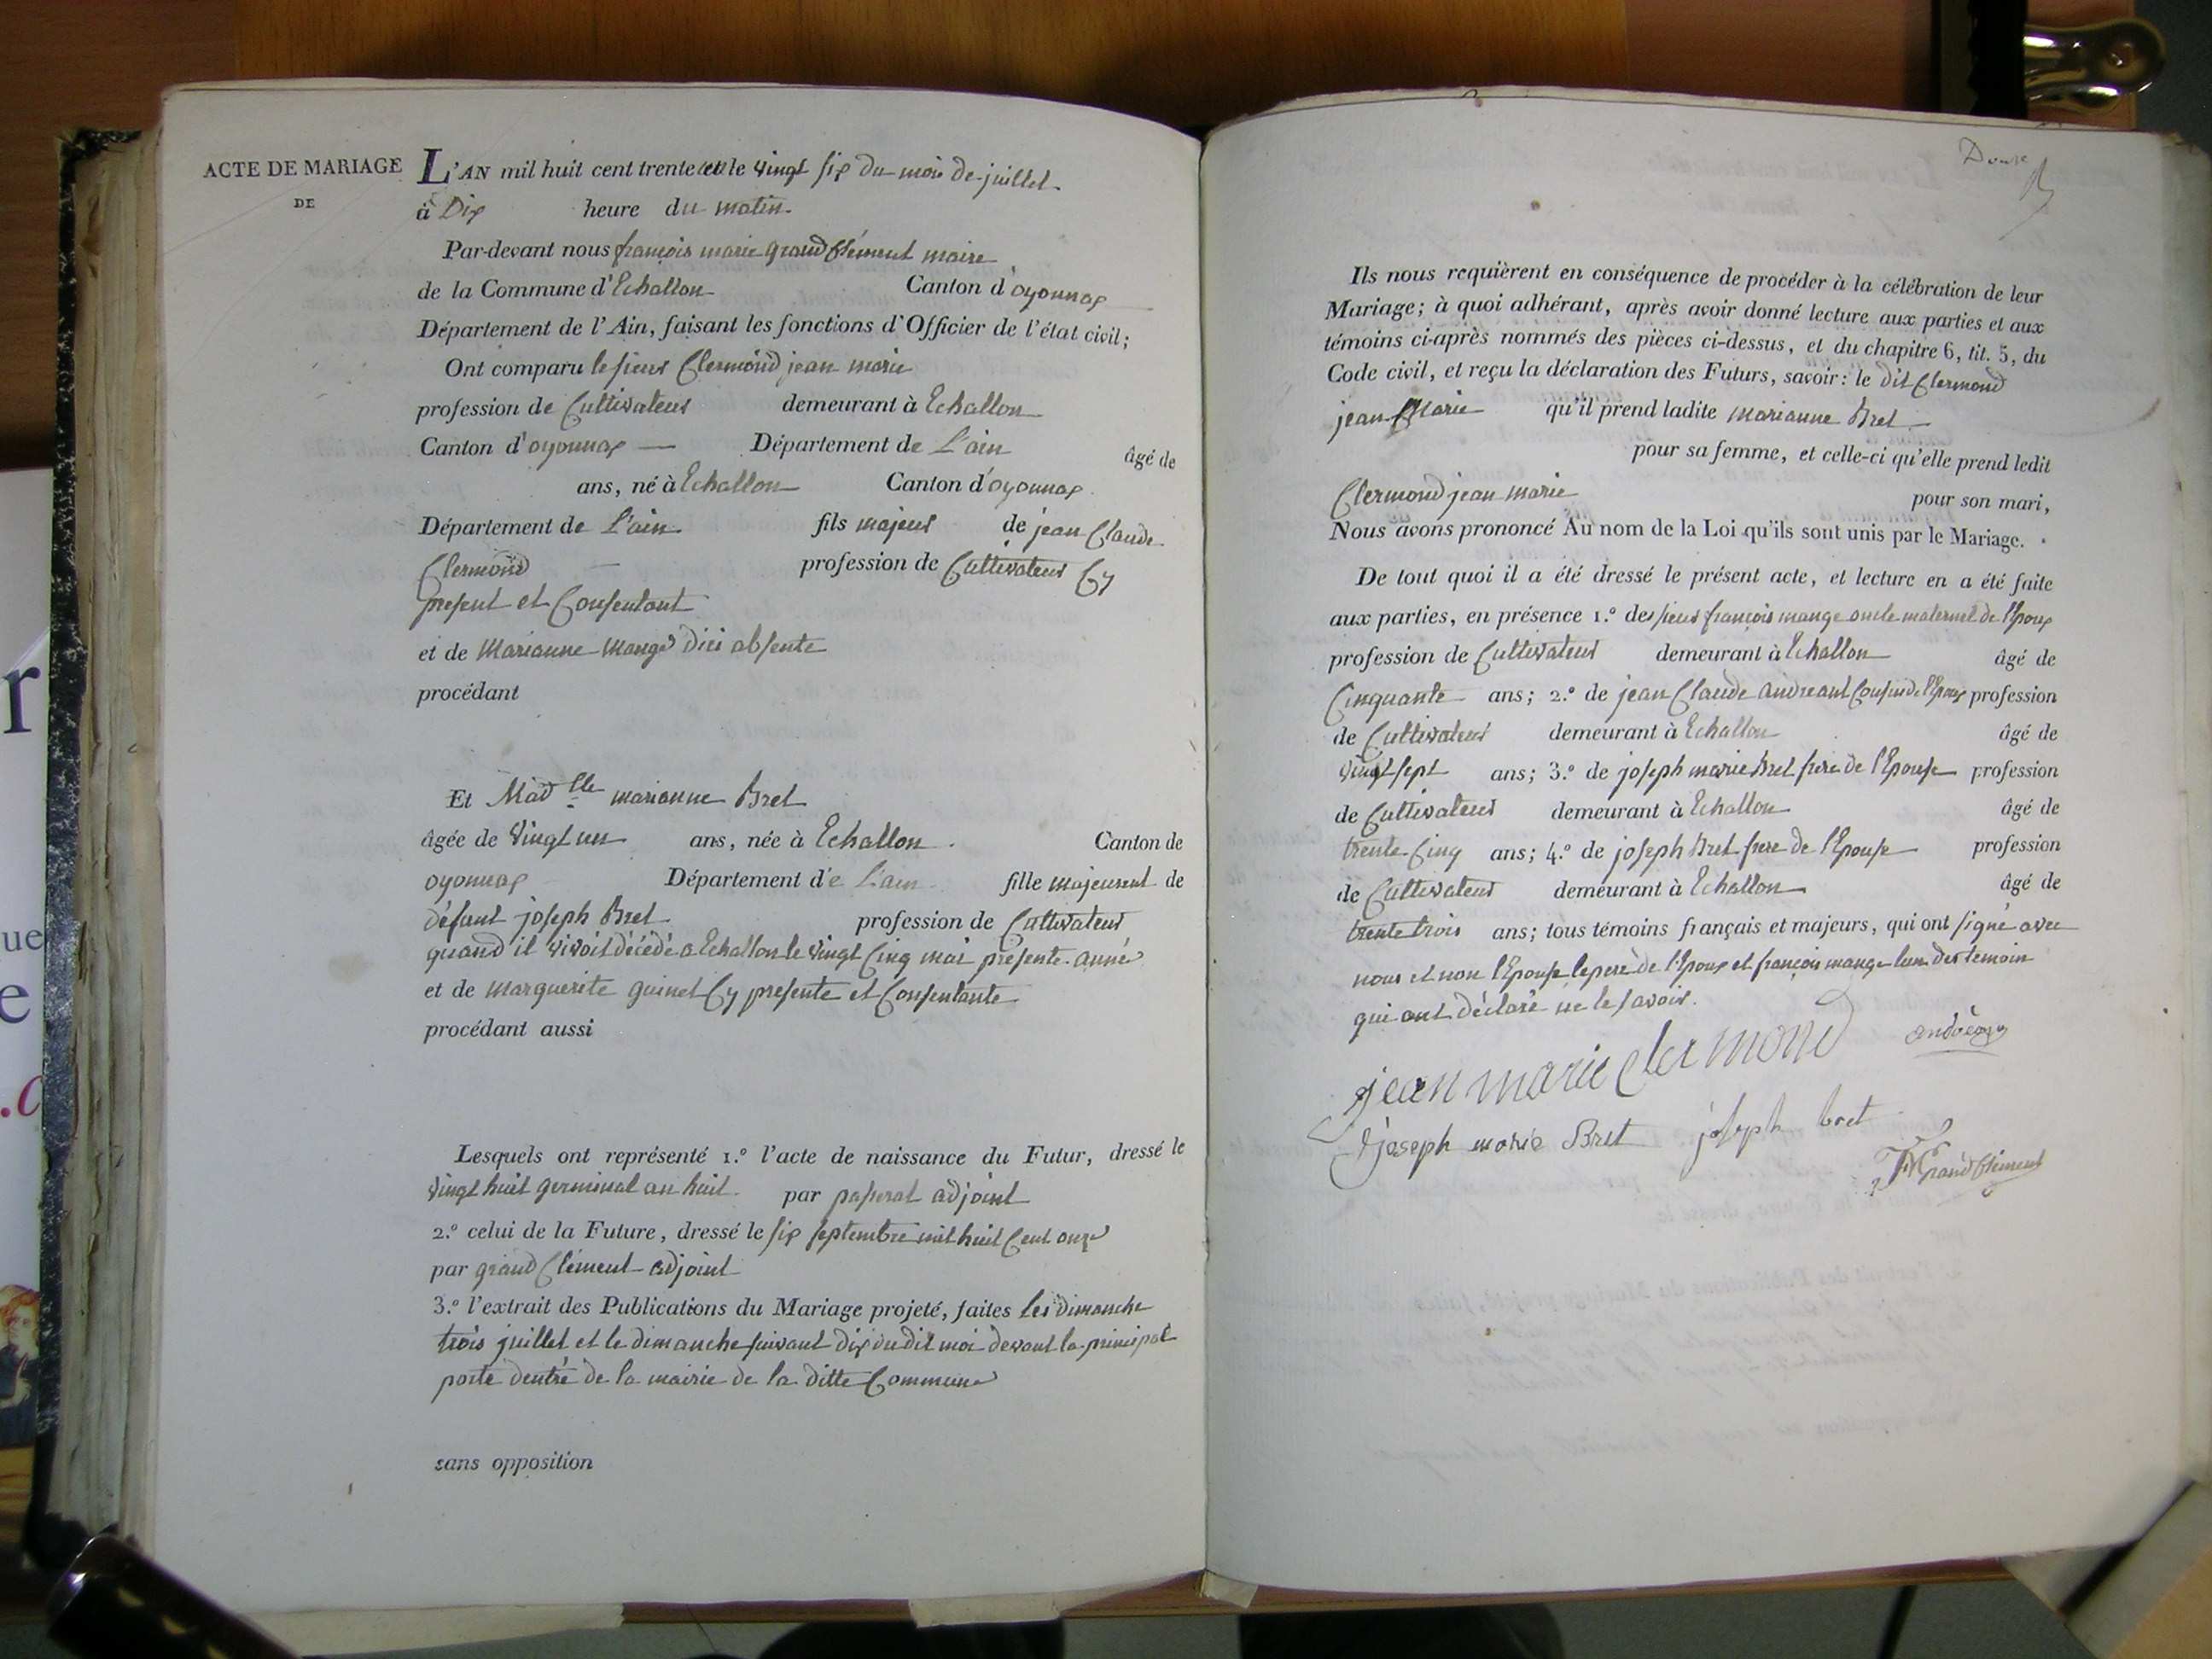 ACTE DE MARIAGE
DE
L'AN mil huit cent trente le vingt six du mois de juillet
à Dix heure du matin
Par-devant nous françois marie grandclément maire
de la Commune d'Echallon Canton d'oyonnax
Département de l'Ain, faisant les fonctions d'Officier de l'état civil;
Ont comparu le sieur Clermond jean marie
profession de Cultivateur demeurant à Echallon
Canton d'oyonnax Département de L'ain âgé de
ans, né à Echallon Canton d'oyonnax
Département de L'ain fils majeur de jean Claude
Clermond profession de Cultivateur Cy
present et Consentant
et de Marianne Mange dici absente
procédant
Et Madlle marianne Bret
âgée de vingt un ans, née à Echallon Canton de
oyonnax Département de L'ain fille majeure de
défunt joseph Bret profession de Cultivateur
quand il vivoit décédé a Echallon le vingt Cinq mai presente anné
et de marguerite guinet Cy presente et Consentante
procédant aussi
Lesquels ont représenté 1.º l'acte de naissance du Futur, dressé le
vingt huit germinal an huit par adjoint
2.º celui de la Future, dressé le six septembre mil huit Cent onze
par grand Clément adjoint
3.º l'extrait des Publications du Mariage projeté, faites les dimanche
trois juillet et le dimanche suivant dix dudit moi devant la principal
porte dentré de la mairie de la ditte Commune
sans opposition
Douze
Ils nous requièrent en conséquence de procéder à la célébration de leur
Mariage; à quoi adhérant, après avoir donné lecture aux parties et aux
témoins ci-après nommés des pièces ci-dessus, et du chapitre 6, tit. 5, du
Code civil, et reçu la déclaration des Futurs, savoir: le dit Clermond
jean Marie qu'il prend ladite marianne Bret
pour sa femme, et celle-ci qu'elle prend ledit
Clermond jean marie pour son mari,
Nous avons prononcé Au nom de la Loi qu'ils sont unis par le Mariage.
De tout quoi il a été dressé le présent acte, et lecture en a été faite
aux parties, en présence 1.º de sieur françois mange oncle maternel de l'Epoux
profession de Cultivateur demeurant à Echallon âgé de
Cinquante ans; 2.º de jean Claude andreant Cousin de l'Epoux profession
de Cultivateur demeurant à Echallon âgé de
vingt sept ans; 3.º de joseph marie Bret frere de l'Epouse profession
de Cultivateur demeurant à Echallon âgé de
trente Cinq ans; 4.º de joseph Bret frere de l'Epouse profession
de Cultivateur demeurant à Echallon âgé de
trente trois ans; tous témoins français et majeurs, qui ont signé avec
nous et non l'Epouse le pere de l'Epoux et françois mange lun des temoin
qui ont déclaré ne le savoir.
jean marie clermond
joseph marie Bret joseph bret
grandclément